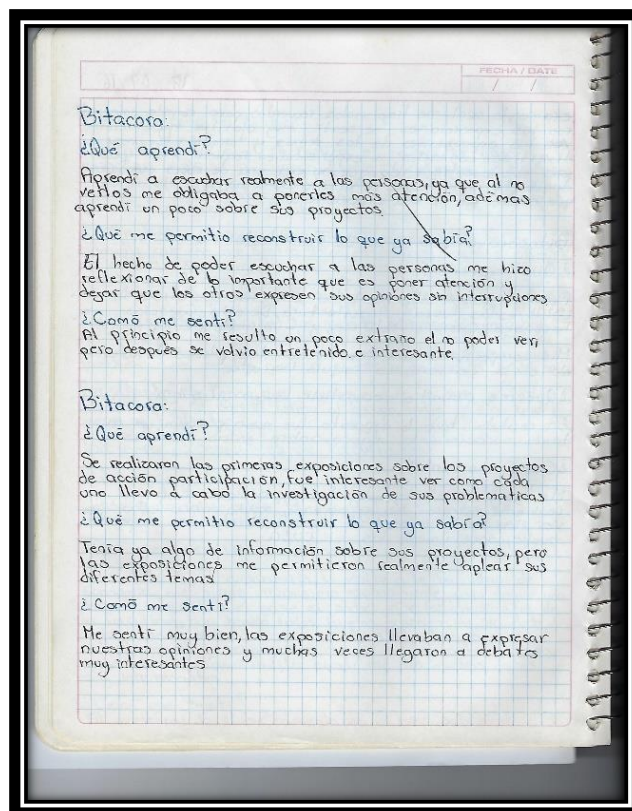 FECHA / DATE
/ /
Bitacora:
¿Qué aprendí?
Aprendí a escuchar realmente a las personas, ya que al no
verlos me obligaba a ponerles más atención, además
aprendí un poco sobre sus proyectos
¿Qué me permitio reconstruir lo que ya sabía?
El hecho de poder escuchar a las personas me hizo
reflexionar de lo importante que es poner atención y
dejar que los otros expresen sus opiniones sin interrupciones
¿Comó me sentí?
Al principio me resulto un poco extraño el no poder ver,
pero después se volvio entretenido e interesante.
Bitacora:
¿Qué aprendí?
Se realizaron las primeras exposiciones sobre los proyectos
de acción participación, fue interesante ver como cada
uno llevo a cabo la investigación de sus problematicas
¿Qué me permitio reconstruir lo que ya sabía?
Tenía ya algo de información sobre sus proyectos, pero
las exposiciones me permitieron realmente aplear sus
diferentes temas
¿Comó me sentí?
Me sentí muy bien, las exposiciones llevaban a expresar
nuestras opiniones y muchas veces llegaron a debates
muy interesantes